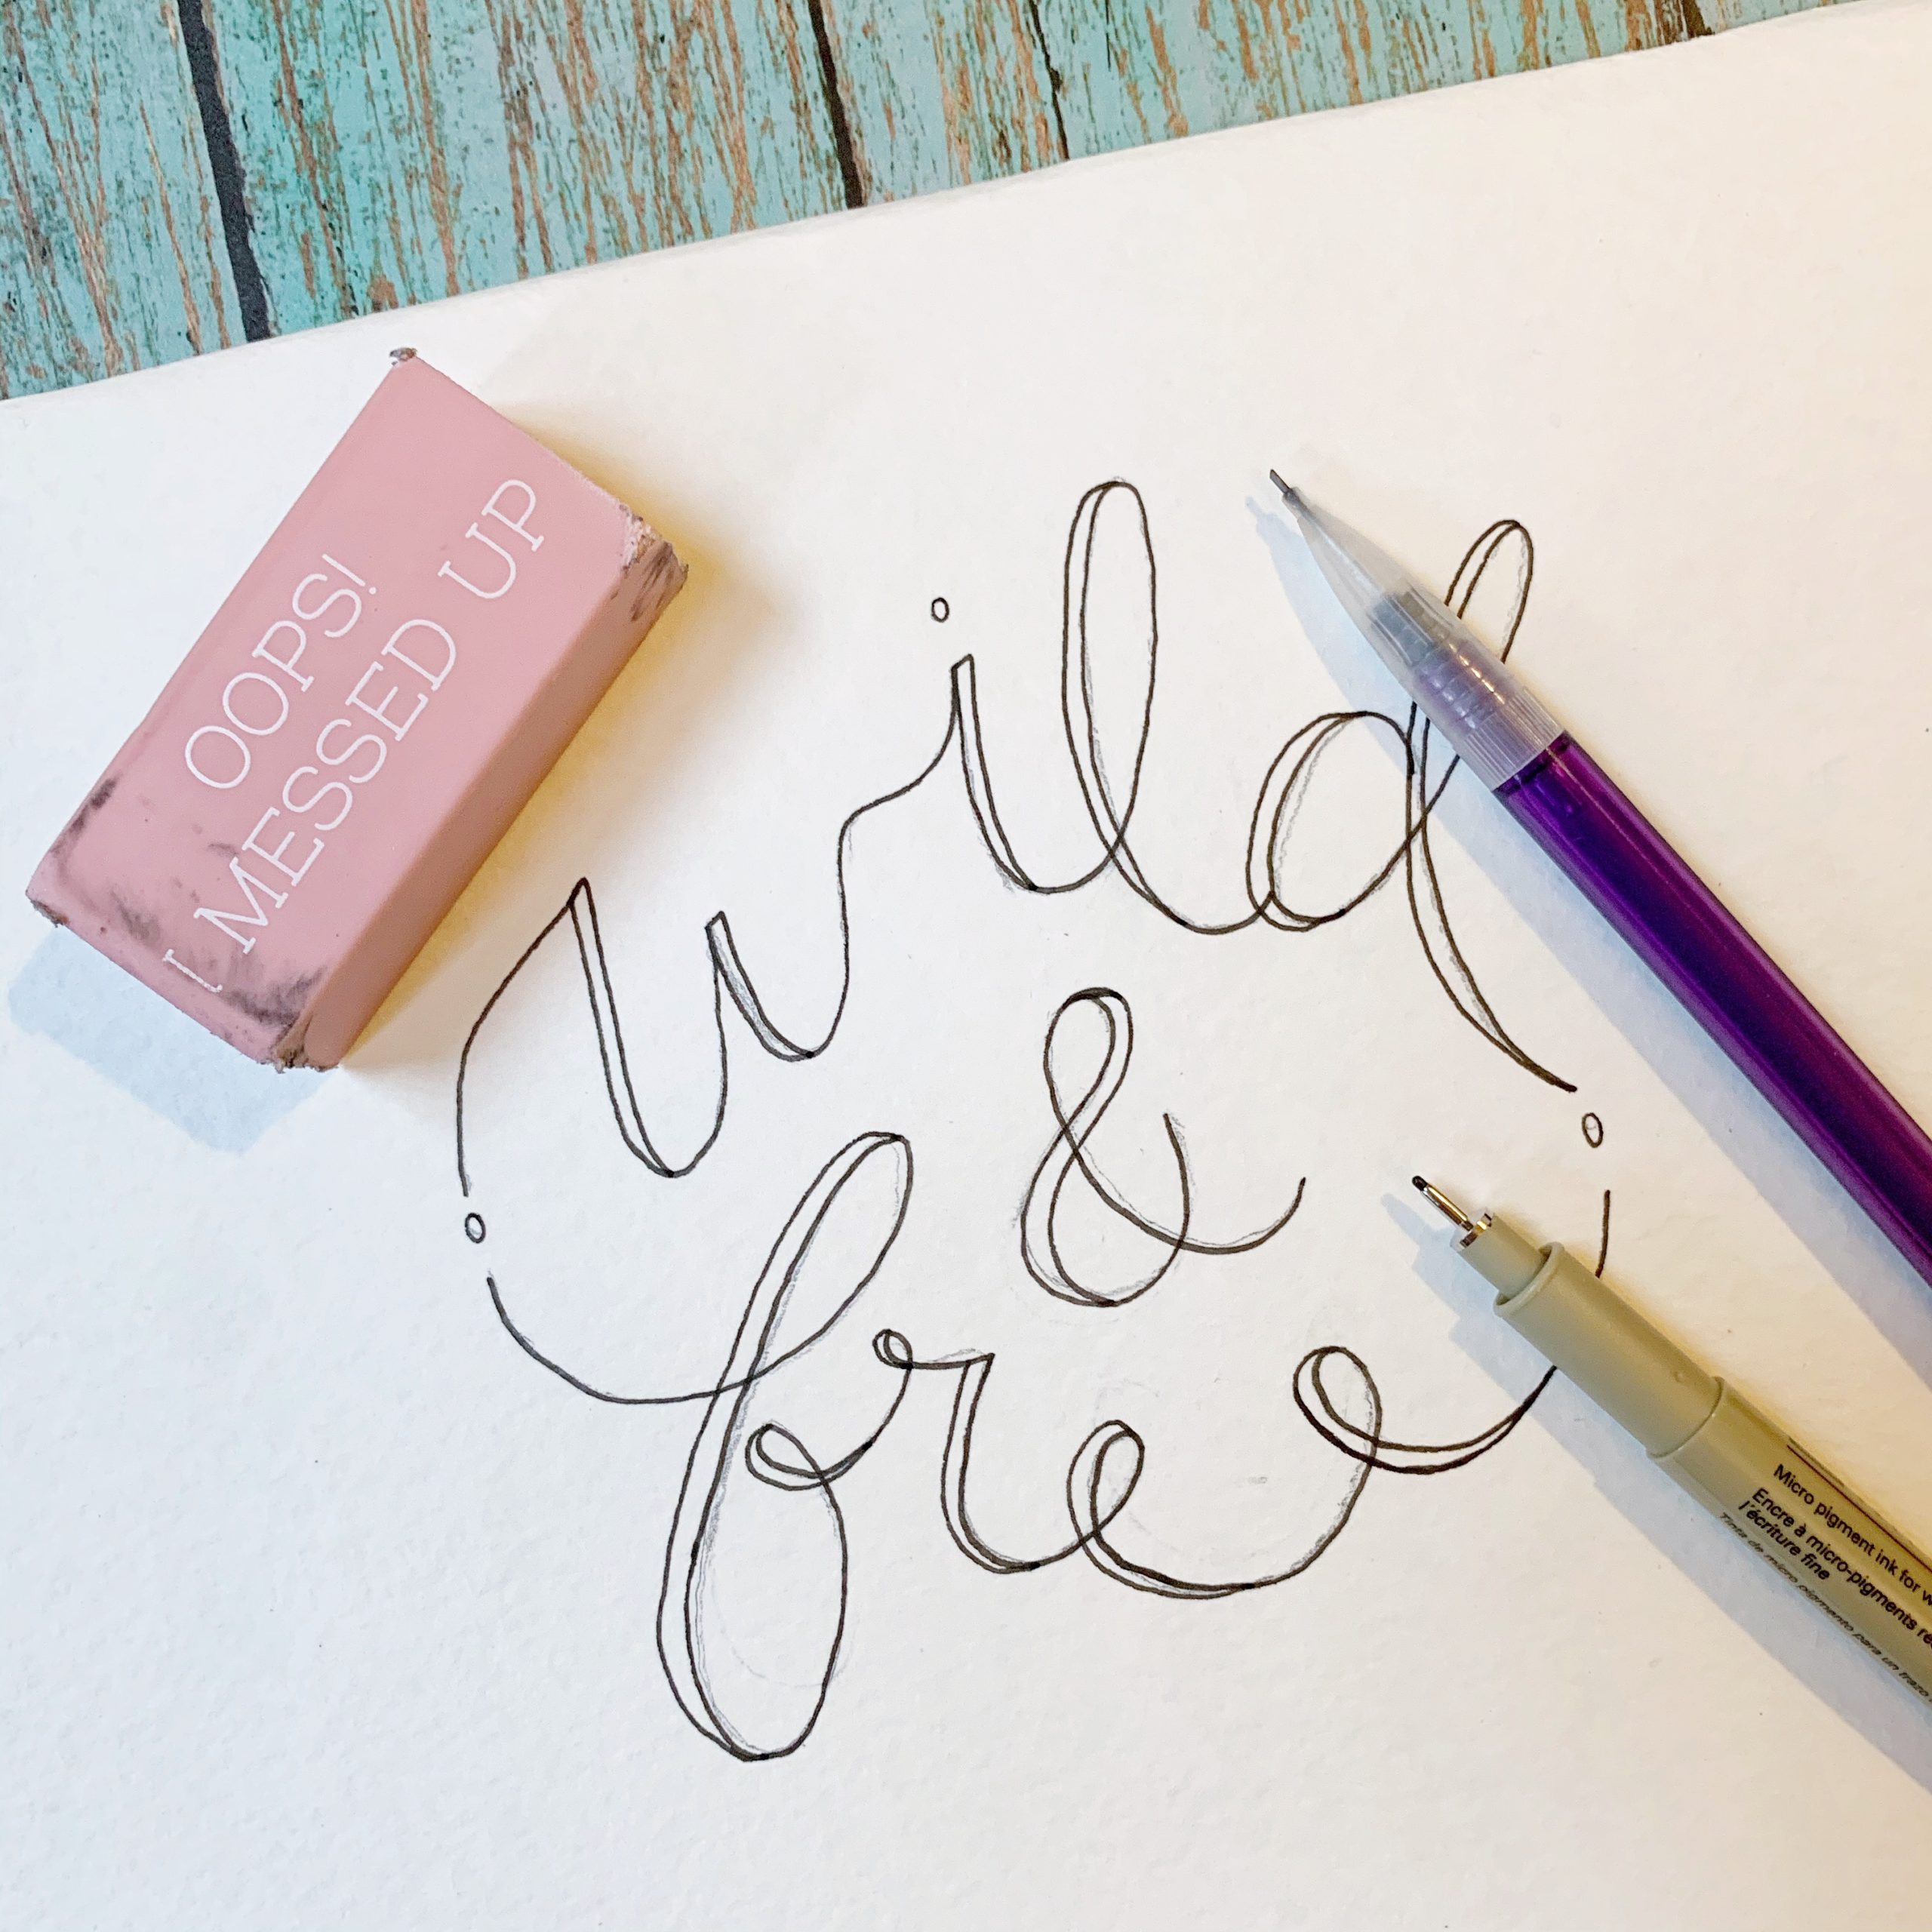 OOPS!
I MESSED UP
wild
&
free
Micro pigment ink for
Encre à micro-pigments
l'écriture fine
Tinta de micro pigmento para un trazo